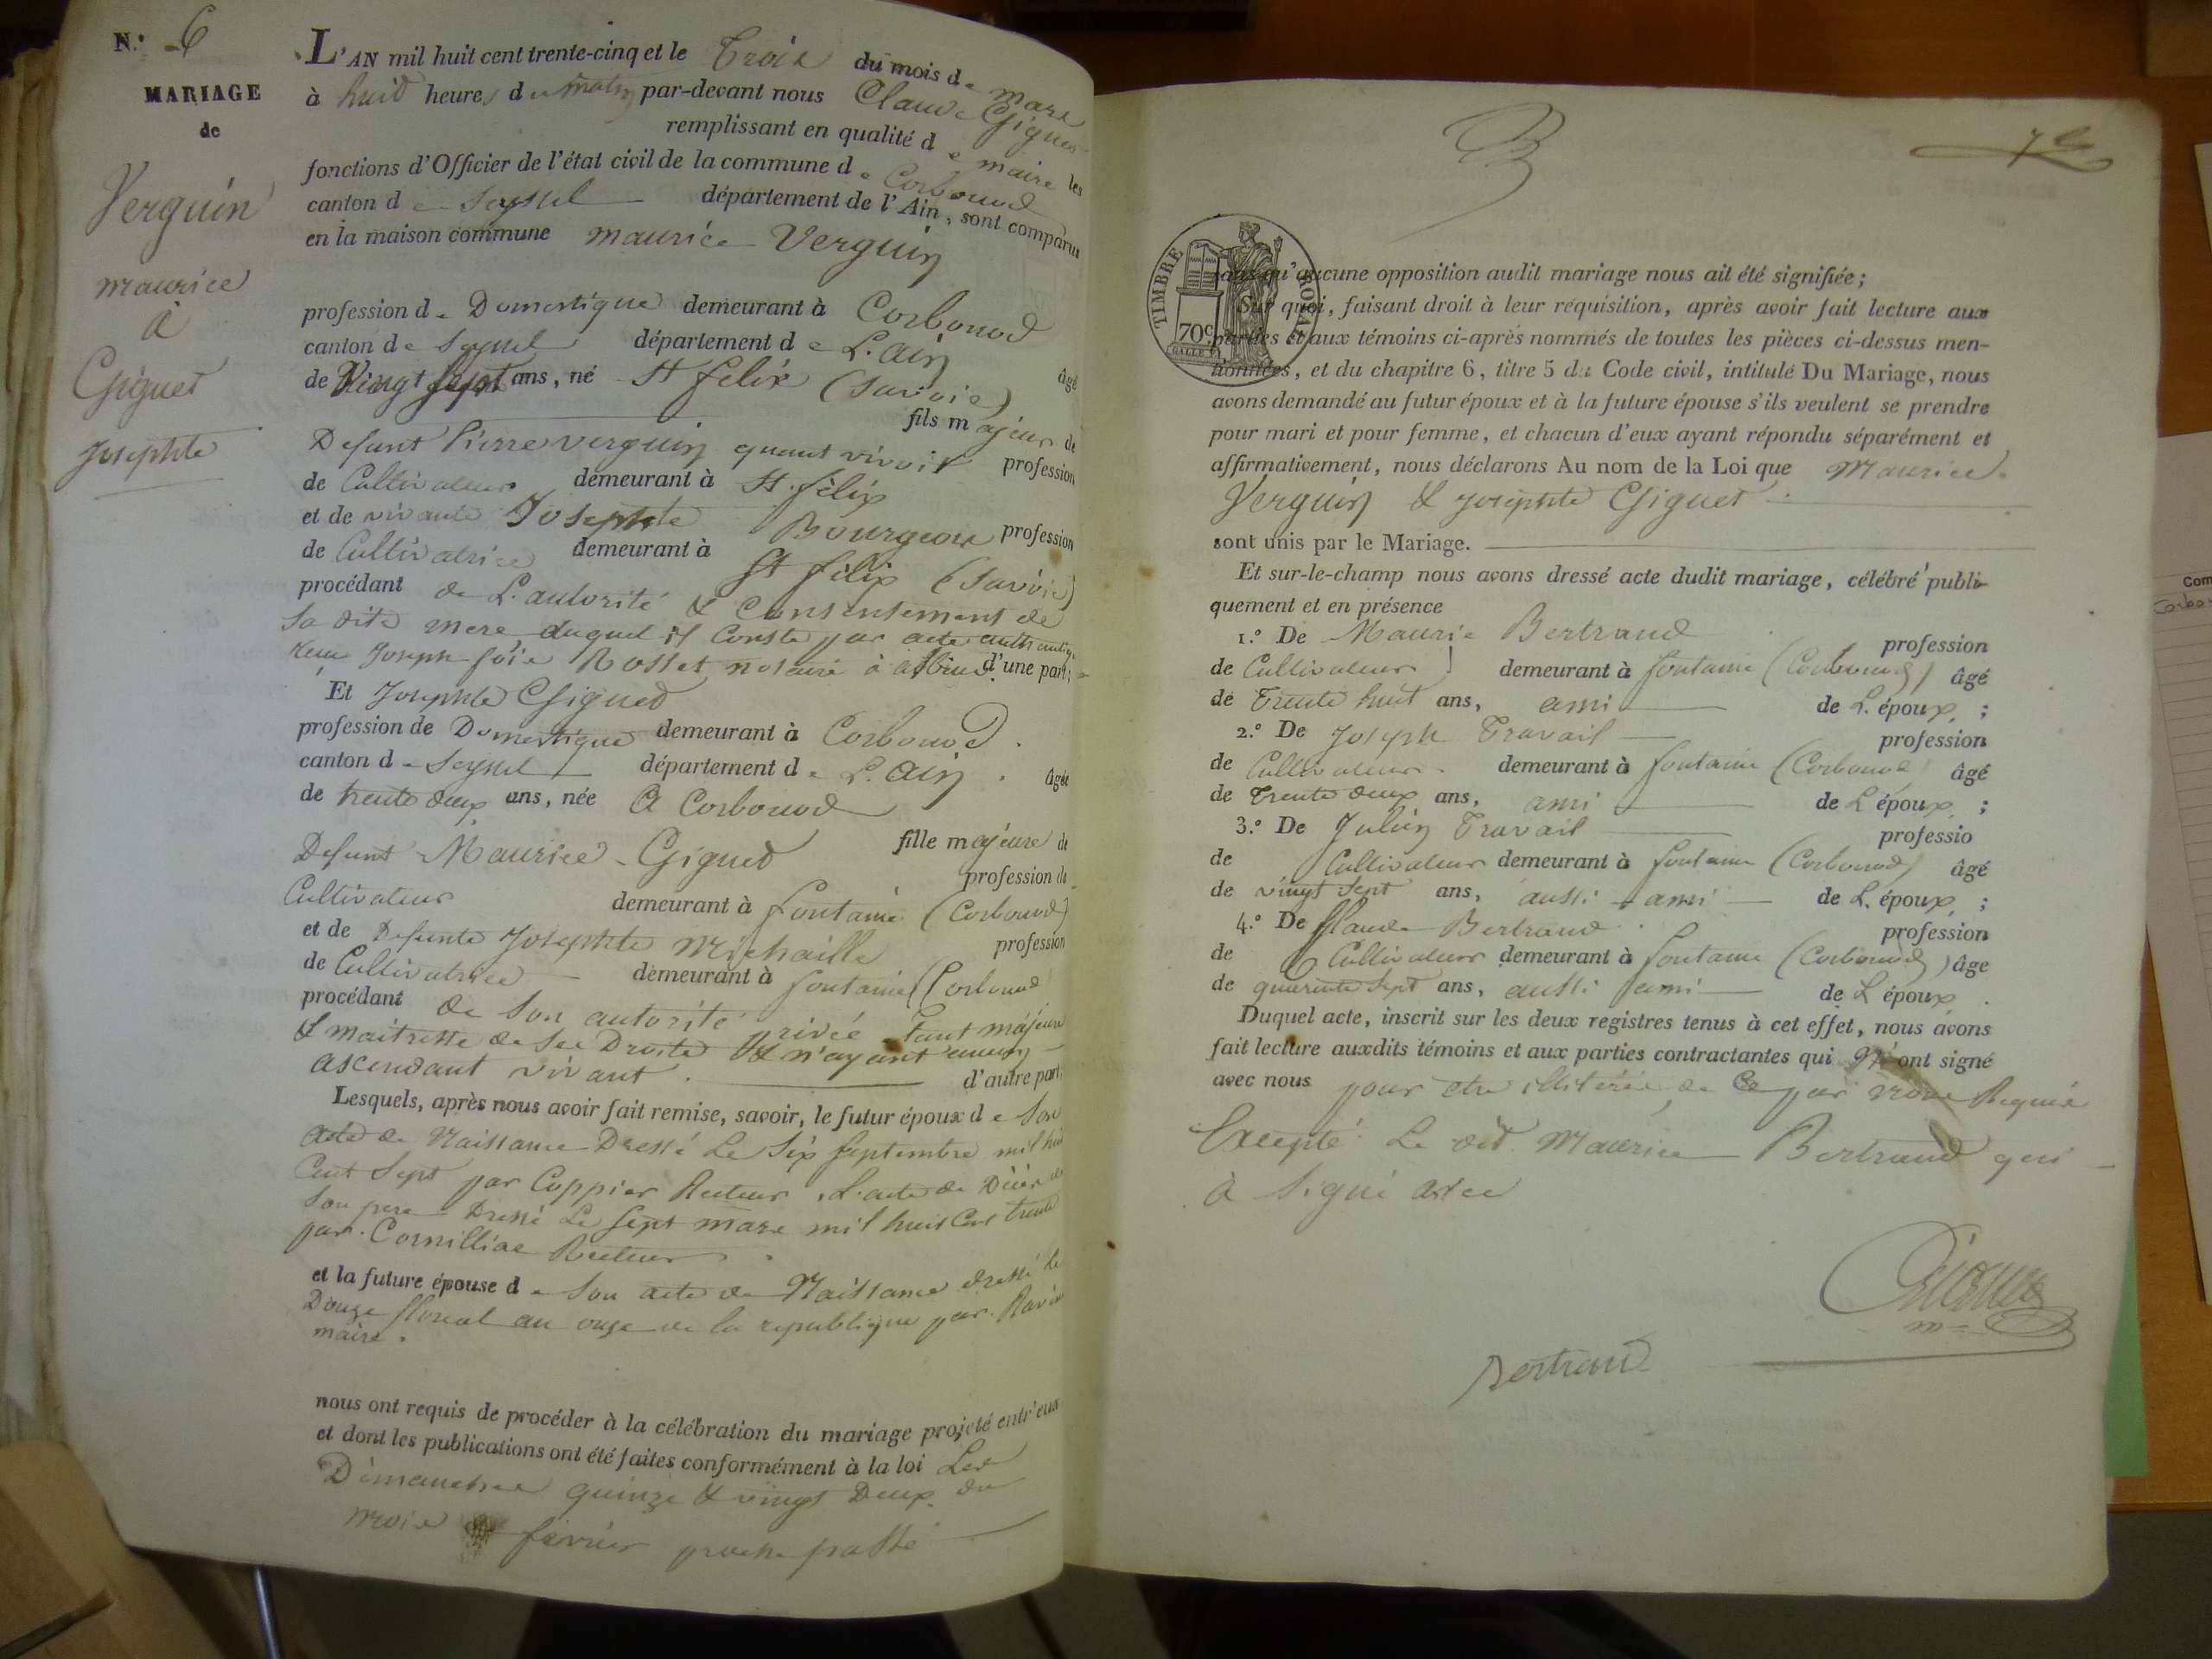 N.º 6
MARIAGE
de
Verguin
maurice
à
Giguet
Josephte
L'AN mil huit cent trente-cinq et le Trois du mois de mars
à huit heures du matin par-devant nous Claude Giguet
remplissant en qualité de maire les
fonctions d'Officier de l'état civil de la commune de Corbonod
canton de Seyssel département de l'Ain, sont comparus
en la maison commune maurice Verguin
profession de Domestique demeurant à Corbonod
canton de Seyssel département de L'ain
âgé
de Vingt Sept ans, né St felix (Savoie)
fils majeur de
Defunt Pierre verguin quant vivoit profession
de Cultivateur demeurant à St. félix
et de vivante Josephte Bourgeois profession
de Cultivatrice demeurant à St félix (Savoie)
procédant de L'autorité & Consentement de
Sa dite mere, duquel il Conste par acte authentiq.
recu Joseph Rosset notaire à d'une part;
Et Josephte Giguet
profession de Domestique demeurant à Corbonod.
canton de Seyssel département de L'ain. âgée
de trente deux ans, née à Corbonod
fille majeure de
Defunt Maurice Giguet
profession de
Cultivateur demeurant à fontaine (Corbonod)
et de Defunte Josephte Michaille profession
de Cultivatrice demeurant à fontaine (Corbonod
procédant de Son autorité privée Etant majeure
& maitresse de Ses Droits & n'ayant aucun
ascendant vivant. d'autre part;
Lesquels, après nous avoir fait remise, savoir, le futur époux de Son
acte de Naissance Dressé Le Six Septembre mil huit
Cent Sept par Coppier Recteur, L'acte de Décès de
Son pere Dressé Le Sept mars mil huit Cent trente
par Cornilliac Recteur
et la future épouse de Son acte de Naissance dressé le
Douze floreal an onze de la republique par Ravier
maire.
nous ont requis de procéder à la célébration du mariage projeté entr'eux
et dont les publications ont été faites conformément à la loi Les
Dimanches quinze & vingt Deux du
mois fevrier proche passé
B
TIMBRE ROYAL
70c
sans qu'aucune opposition audit mariage nous ait été signifiée;
Sur quoi, faisant droit à leur réquisition, après avoir fait lecture aux
parties et aux témoins ci-après nommés de toutes les pièces ci-dessus men-
tionnées, et du chapitre 6, titre 5 du Code civil, intitulé Du Mariage, nous
avons demandé au futur époux et à la future épouse s'ils veulent se prendre
pour mari et pour femme, et chacun d'eux ayant répondu séparément et
affirmativement, nous déclarons Au nom de la Loi que Maurice
Verguin & Josephte Giguet
sont unis par le Mariage.
Et sur-le-champ nous avons dressé acte dudit mariage, célébré publi-
quement et en présence
1.º De Maurice Bertrand profession
de Cultivateur demeurant à fontaine (Corbonod) âgé
de Trente huit ans, ami de L'époux ;
2.º De Joseph Travail profession
de Cultivateur. demeurant à fontaine (Corbonod âgé
de Trente deux ans, ami de L'époux ;
3.º De Julien Travail professio
de Cultivateur demeurant à fontaine (Corbonod) âgé
de vingt Sept ans, aussi ami de L'époux ;
4.º De Claude Bertrand profession
de Cultivateur demeurant à fontaine (Corbonod) âge
de quarente Sept ans, aussi ami de L'époux.
Duquel acte, inscrit sur les deux registres tenus à cet effet, nous avons
fait lecture auxdits témoins et aux parties contractantes qui N'ont signé
avec nous pour etre illitérés, de Ce par nous Requis
Excepté Le dit Maurice Bertrand qui
à Signé avec
Bertrand